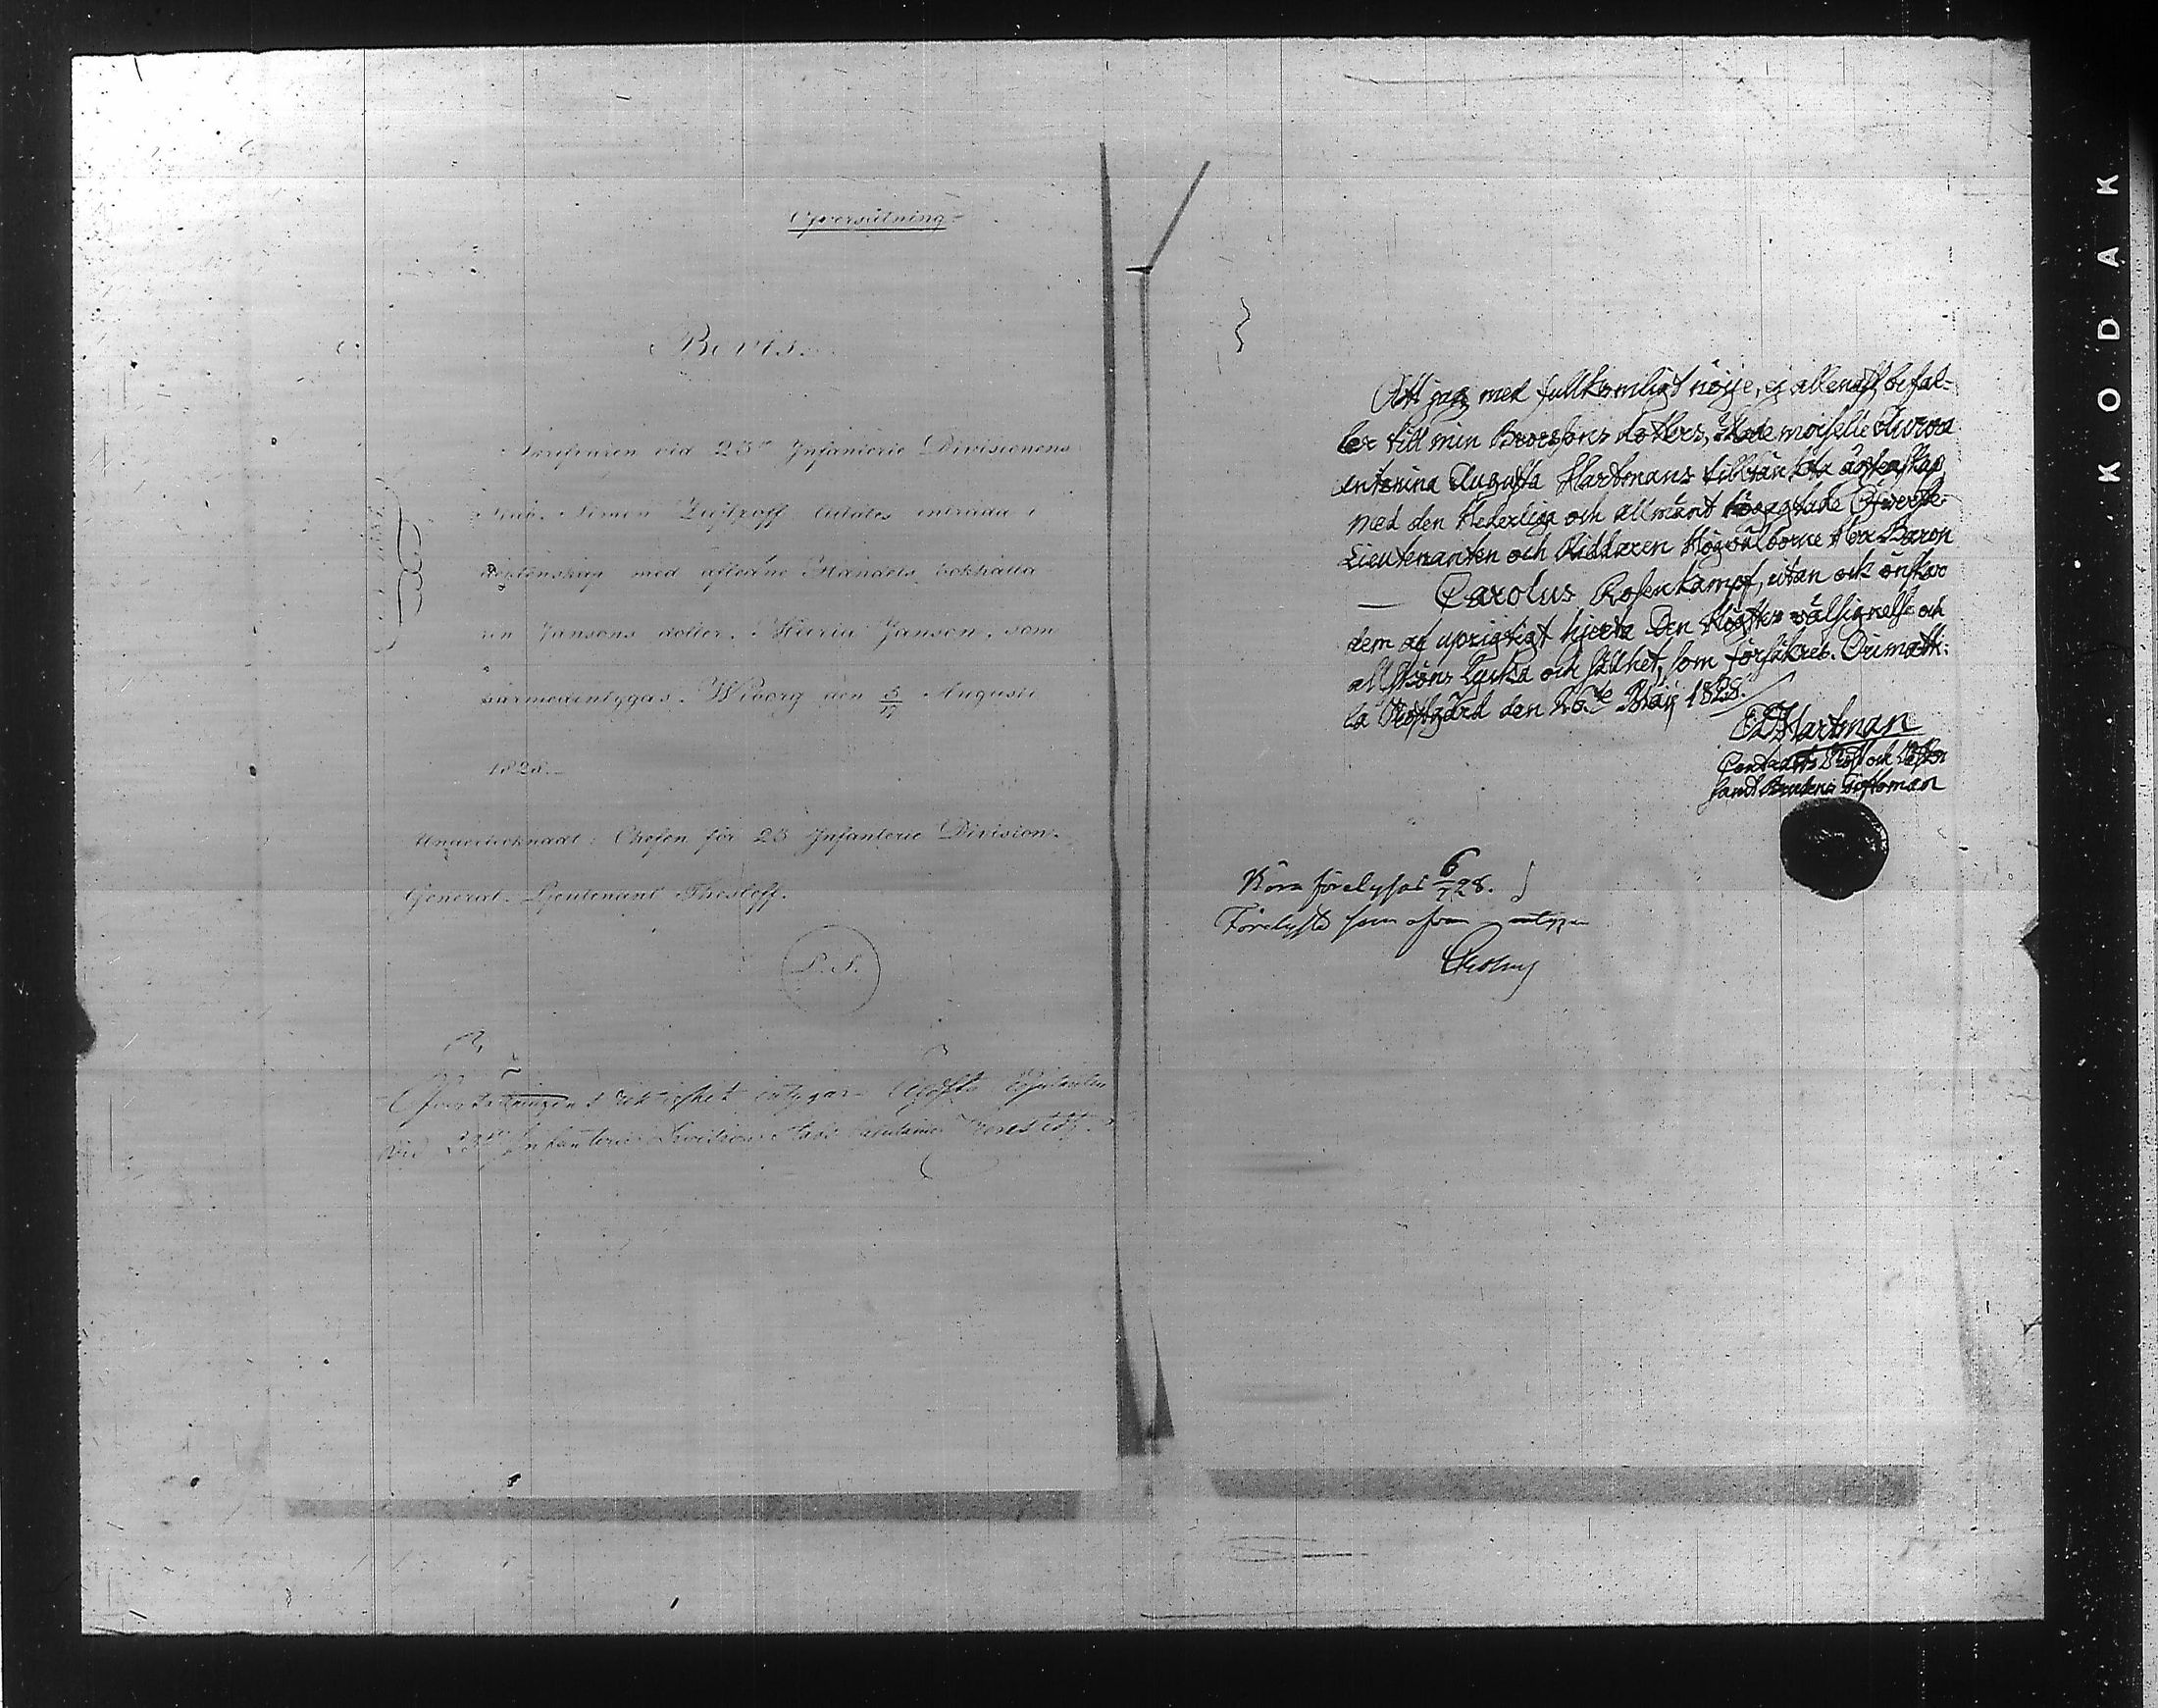 Öfversättning
Bevis.
vid 23de Infanterie Divisionens
Stab, Simon tillåtes inträda i
Ägtenskap med afledne Handels bokhålla
ren Jansons dotter, Maria Janson, som
härmedintygas. Wiborg den 5/17 Augusti
1828.
Undertecknadt: Chefen för 23 Infanterie Division.
General-Lieutenant Thesleff.
L. S.
Öfversättningens riktighet intygar
vid 23de Infanterie Divisions Stab
Att jag med fullkomligt nöije, ej allenast befal-
ler till min Brorsons dotters, Mademoiselle Aurora
Antonina Augusta Hartmans tilltänkta äktenskap
med den Hederliga och allmänt högagtade Öfverste-
Lieutenanten och Riddaren Högvälborne Herr Baron
Carolus Rosenkampf, utan ock önskar
dem af uprigtigt hjerta Den Högstes välsignelse och
all sköns lycka och sällhet, som försäkras. Orimatti-
la Prostgård den 26te Maij 1828.
Hartman
Prost och
samt Brudens Giftoman
Böra förelysas 6/7 28.
Förelyste som ofvan intygar
KODAK